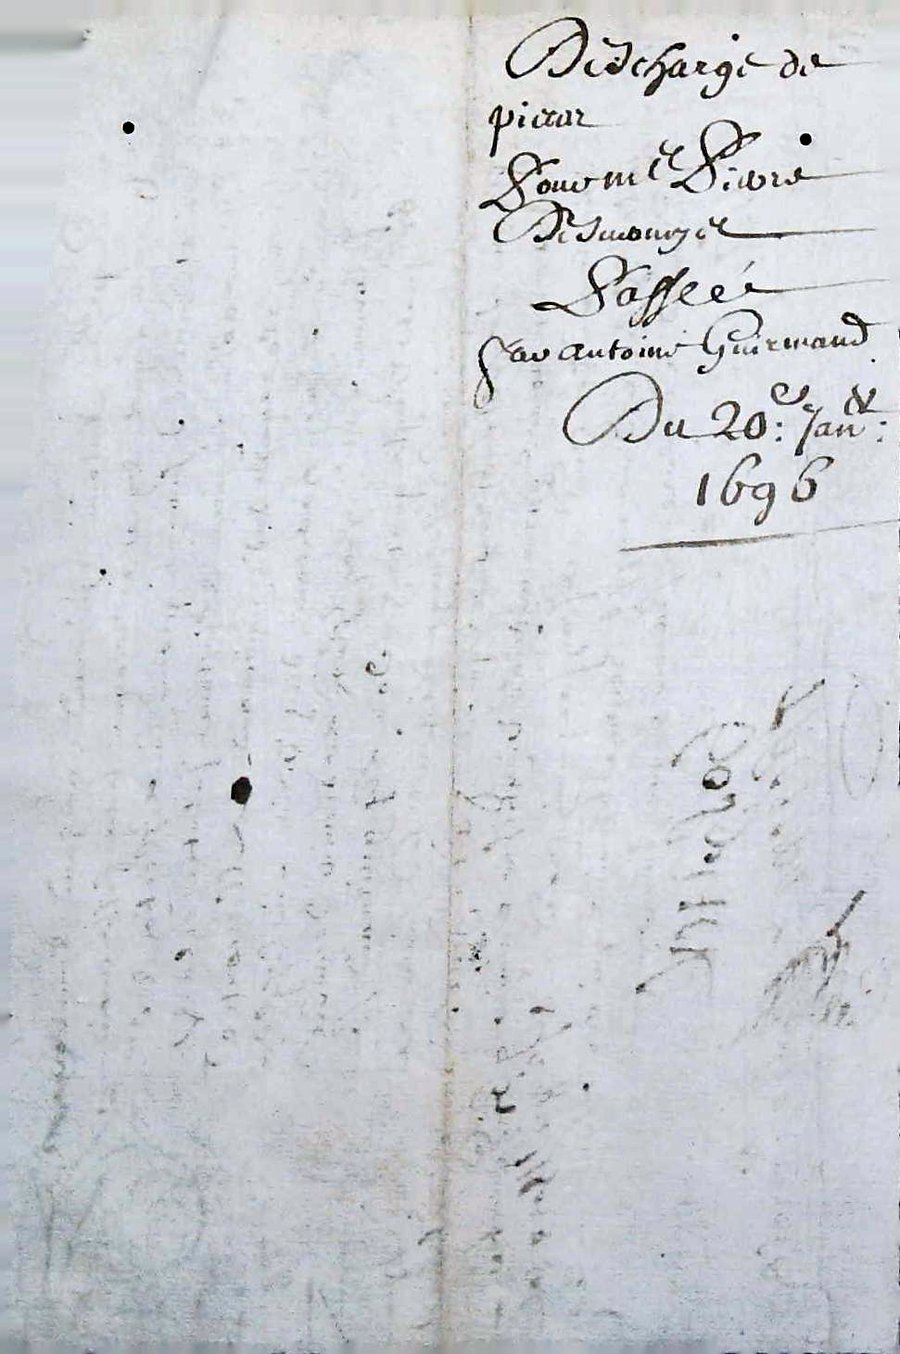 Descharge de
pieces
Pour m.e Pierre
Desmonges
Passée
Par antoine Guirmand
Du 20.e: Jan.er:
1696